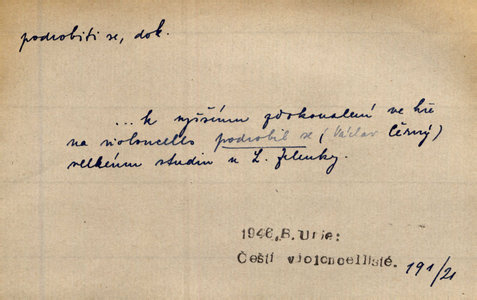 podrobiti se, dok.
... k vyššímu zdokonalení ve hře
na violoncello podrobil se (Václav Černý)
velkému studiu u L. Zelenky.
1946, B. Urie:
Čeští violoncellisté. 191/21